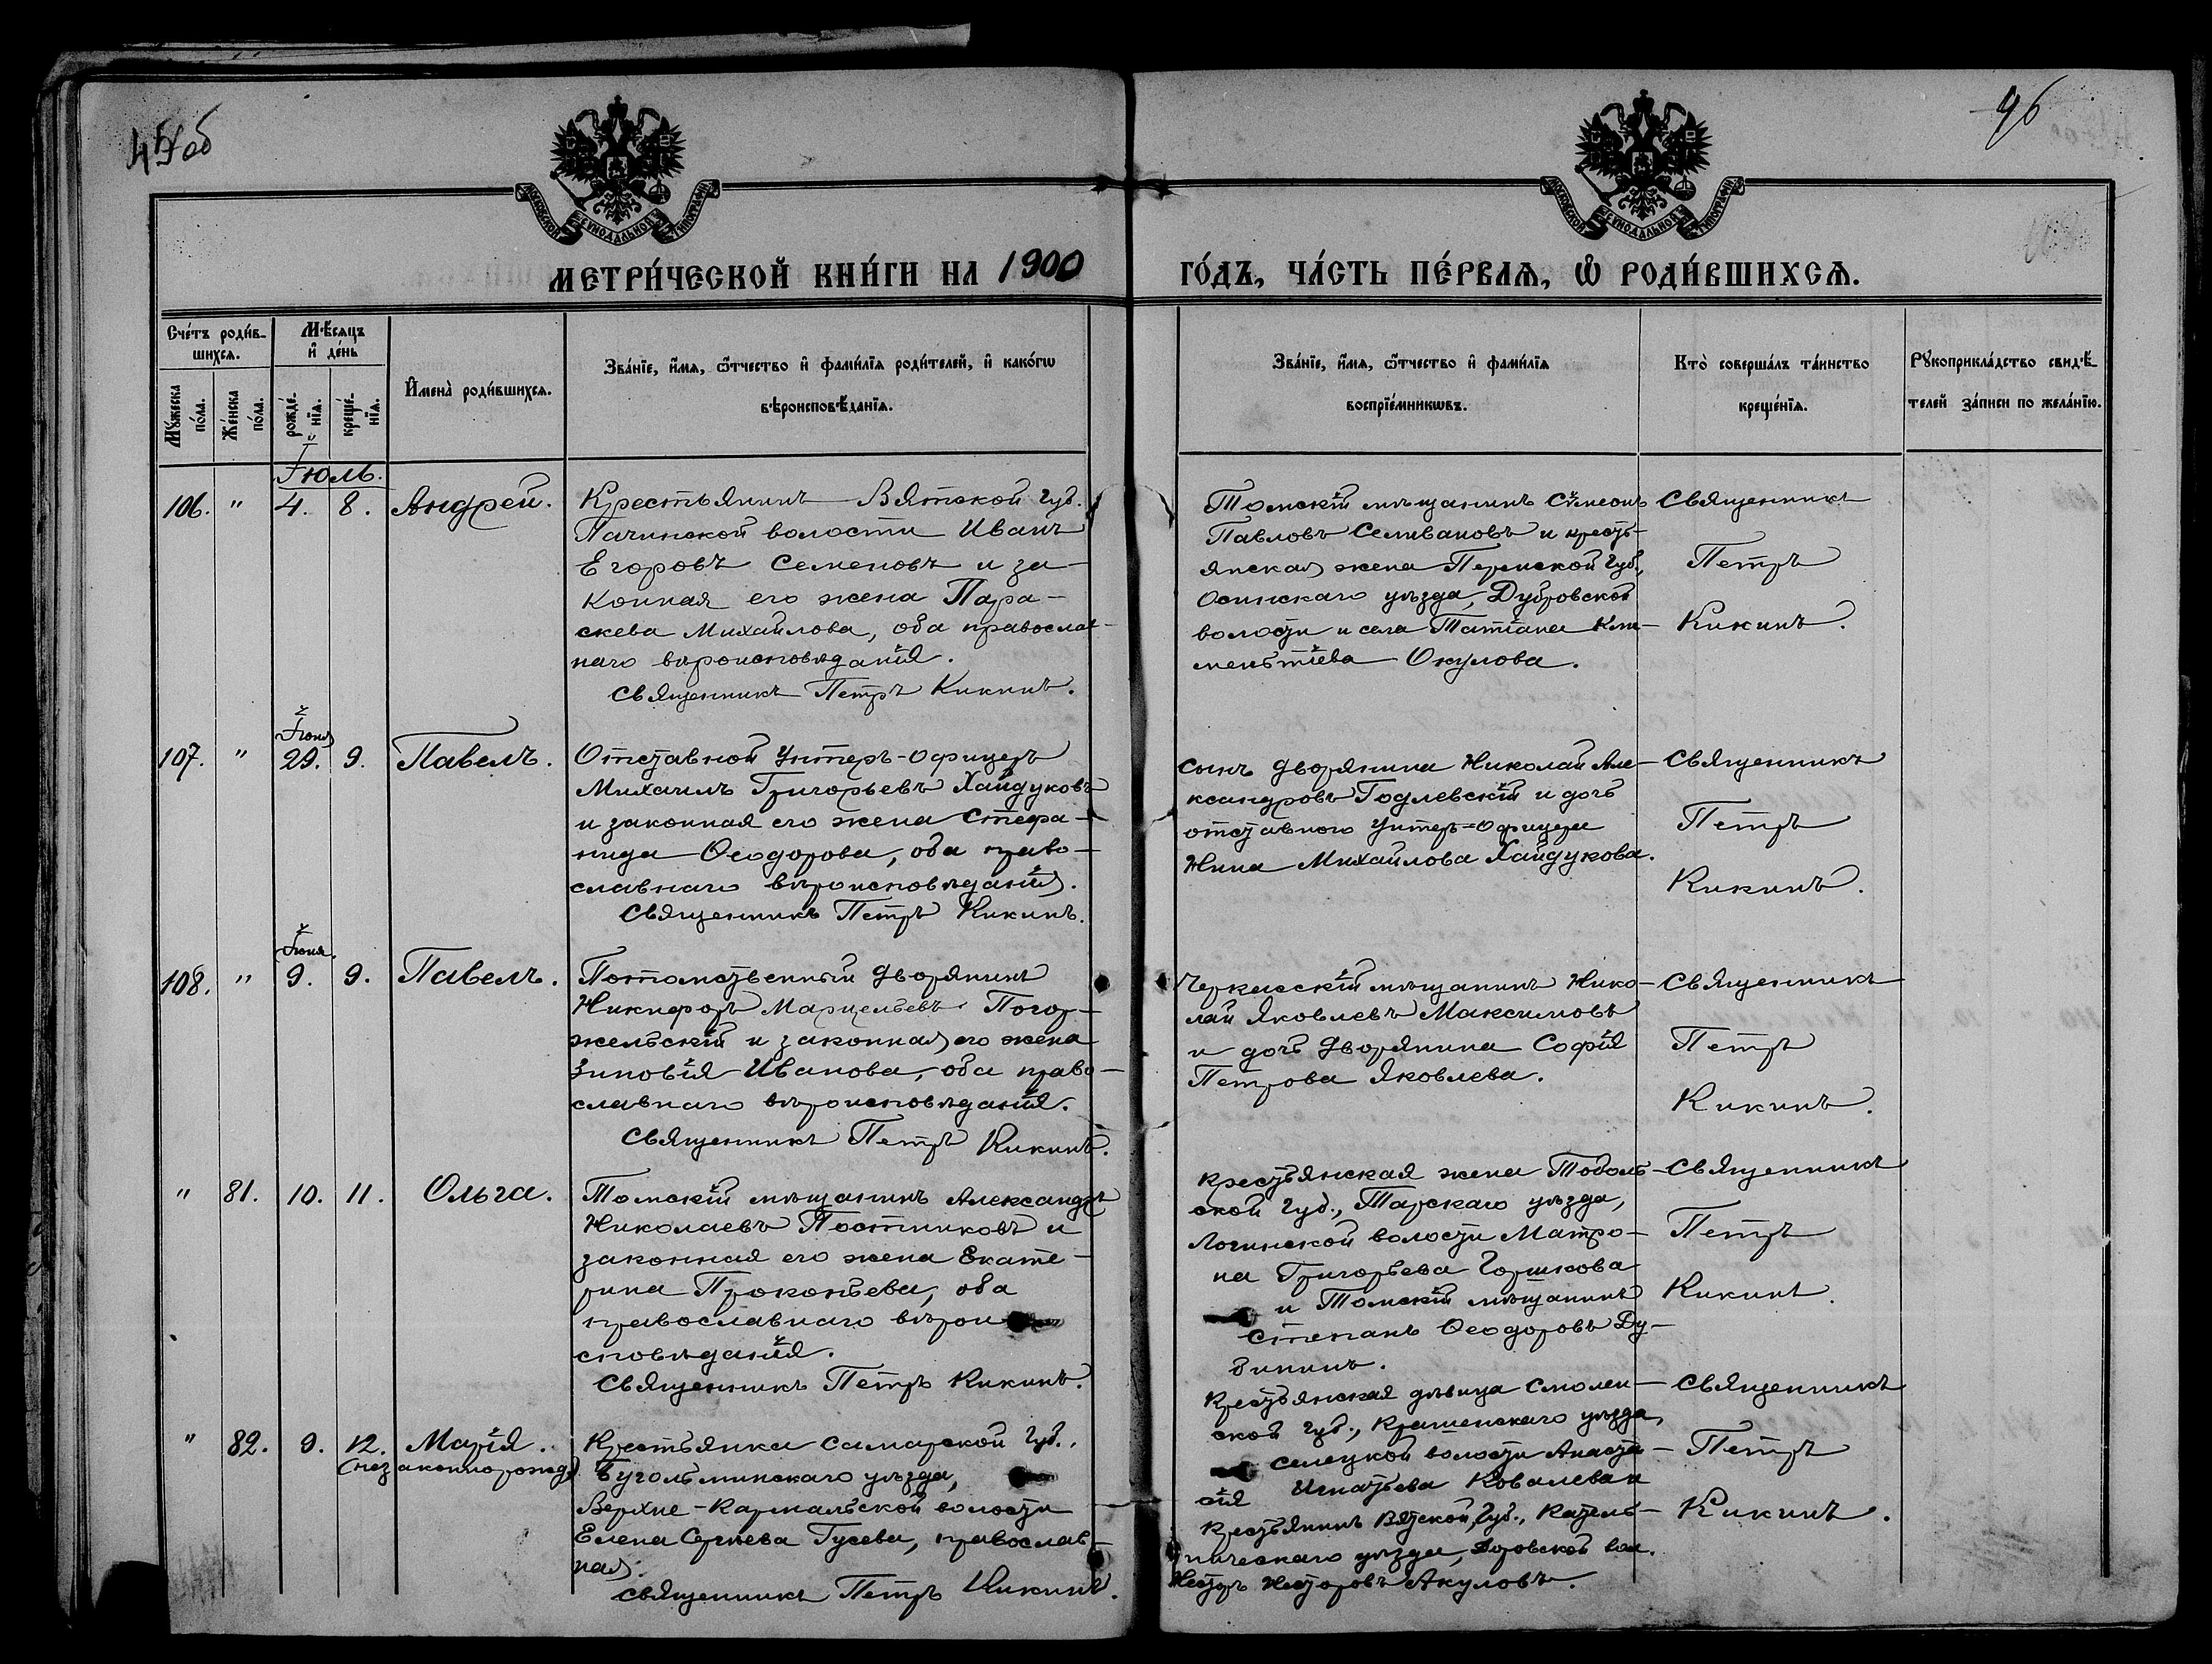 96
МОСКОВСКОЙ СѴНОДАЛЬНОЙ ТИПОГРАФІИ
МОСКОВСКОЙ СѴНОДАЛЬНОЙ ТИПОГРАФІИ
МЕТРИ́ЧЕСКОЙ КНИ́ГИ НА 1900
ГО́ДЪ, ЧА́СТЬ ПЕ́РВАѦ, Ѡ҆ РОДИ́ВШИХСѦ.
Сче́тъ роди́в-
шихсѧ.
Мꙋ́жеска по́ла.
Же́нска по́ла.
Мѣ́сѧцъ
и҆ де́нь
рожде́нїѧ.
креще́нїѧ.
И҆мена̀ роди́вшихсѧ.
Зва́нїе, и҆́мѧ, ѻ҆́тчество и҆ фами́лїѧ роди́телей, и҆ како́гѡ
вѣроисповѣ́данїѧ.
Зва́нїе, и҆́мѧ, ѻ҆́тчество и҆ фами́лїѧ
воспрїе́мникѡвъ.
Кто̀ соверша́лъ та́инство
креще́нїѧ.
Рꙋкоприкла́дство свидѣ́-
телей за́писи по жела́нїю.
Іюль.
106. " 4. 8. Андрей.
Крестьянинъ Вятской губ.
Пачинской волости Иванъ
Егоровъ Семеновъ и за-
конная его жена Пара-
скева Михайлова, оба православ-
наго вѣроисповѣданія.
Священникъ Петръ Кикинъ.
Томскій мѣщанинъ Сѵмеонъ
Павловъ Селивановъ и кресть-
янская жена Пермской губ.,
Осинскаго уѣзда, Дубровской
волости и села Татіана Кли-
ментіева Окулова.
Священникъ
Петръ
Кикинъ.
Іюня
107. " 29. 9. Павелъ.
Отставной Унтеръ-офицеръ
Михаилъ Григорьевъ Хайдуковъ
и законная его жена Стефа-
нида Ѳеодорова, оба право-
славнаго вѣроисповѣданія.
Священникъ Петръ Кикинъ.
Сынъ дворянина Николай Але-
ксандровъ Годлевскій и дочь
отставного Унтеръ-офицера
Нина Михайлова Хайдукова.
Священникъ
Петръ
Кикинъ.
Іюня.
108. " 9. 9. Павелъ.
Потомственный дворянинъ
Никифоръ Марцельевъ Погор-
жельскій и законная его жена
Зиновія Иванова, оба право-
славнаго вѣроисповѣданія.
Священникъ Петръ Кикинъ.
Черкасскій мѣщанинъ Нико-
лай Яковлевъ Максимовъ
и дочь дворянина Софія
Петрова Яковлева.
Священникъ
Петръ
Кикинъ.
" 81. 10. 11. Ольга.
Томскій мѣщанинъ Александръ
Николаевъ Постниковъ и
законная его жена Екате-
рина Прокопьева, оба
православнаго вѣрои
сповѣданія.
Священникъ Петръ Кикинъ.
Крестьянская жена Тоболь-
ской губ., Тарскаго уѣзда,
Логинской волости Матро-
на Григорьева Горшкова
и Томскій мѣщанинъ
Степанъ Ѳеодоровъ Ду-
бининъ.
Священникъ
Петръ
Кикинъ.
" 82. 9. 12. Марія.
(незаконнорожд)
Крестьянка Самарской губ.,
Бугольминскаго уѣзда,
Верхне-Кармальской волости
Елена Сергѣева Гусева, православ-
ная.
Священникъ Петръ Кикинъ.
Крестьянская дѣвица Смолен-
ской губ., уѣзда,
селецкой волости Анаста-
сія Игнатьева Ковалева и
крестьянинъ Вятской губ., Котель-
ническаго уѣзда, вол.
Несторъ Несторовъ Акуловъ.
Священникъ
Петръ
Кикинъ.